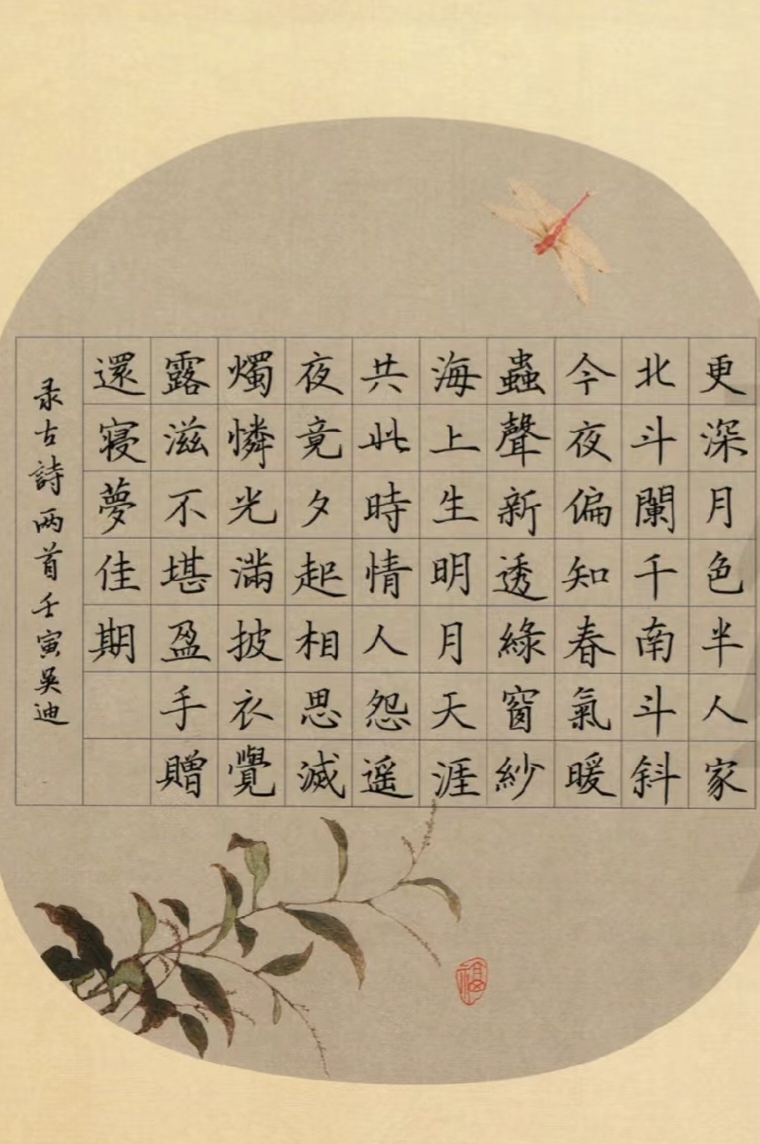 更深月色半人家
北斗闌干南斗斜
今夜偏知春氣暖
蟲聲新透綠窗紗
海上生明月天涯
共此時情人怨遥
夜竟夕起相思滅
燭憐光滿披衣覺
露滋不堪盈手贈
還寝夢佳期
录古詩两首壬寅吴迪
福